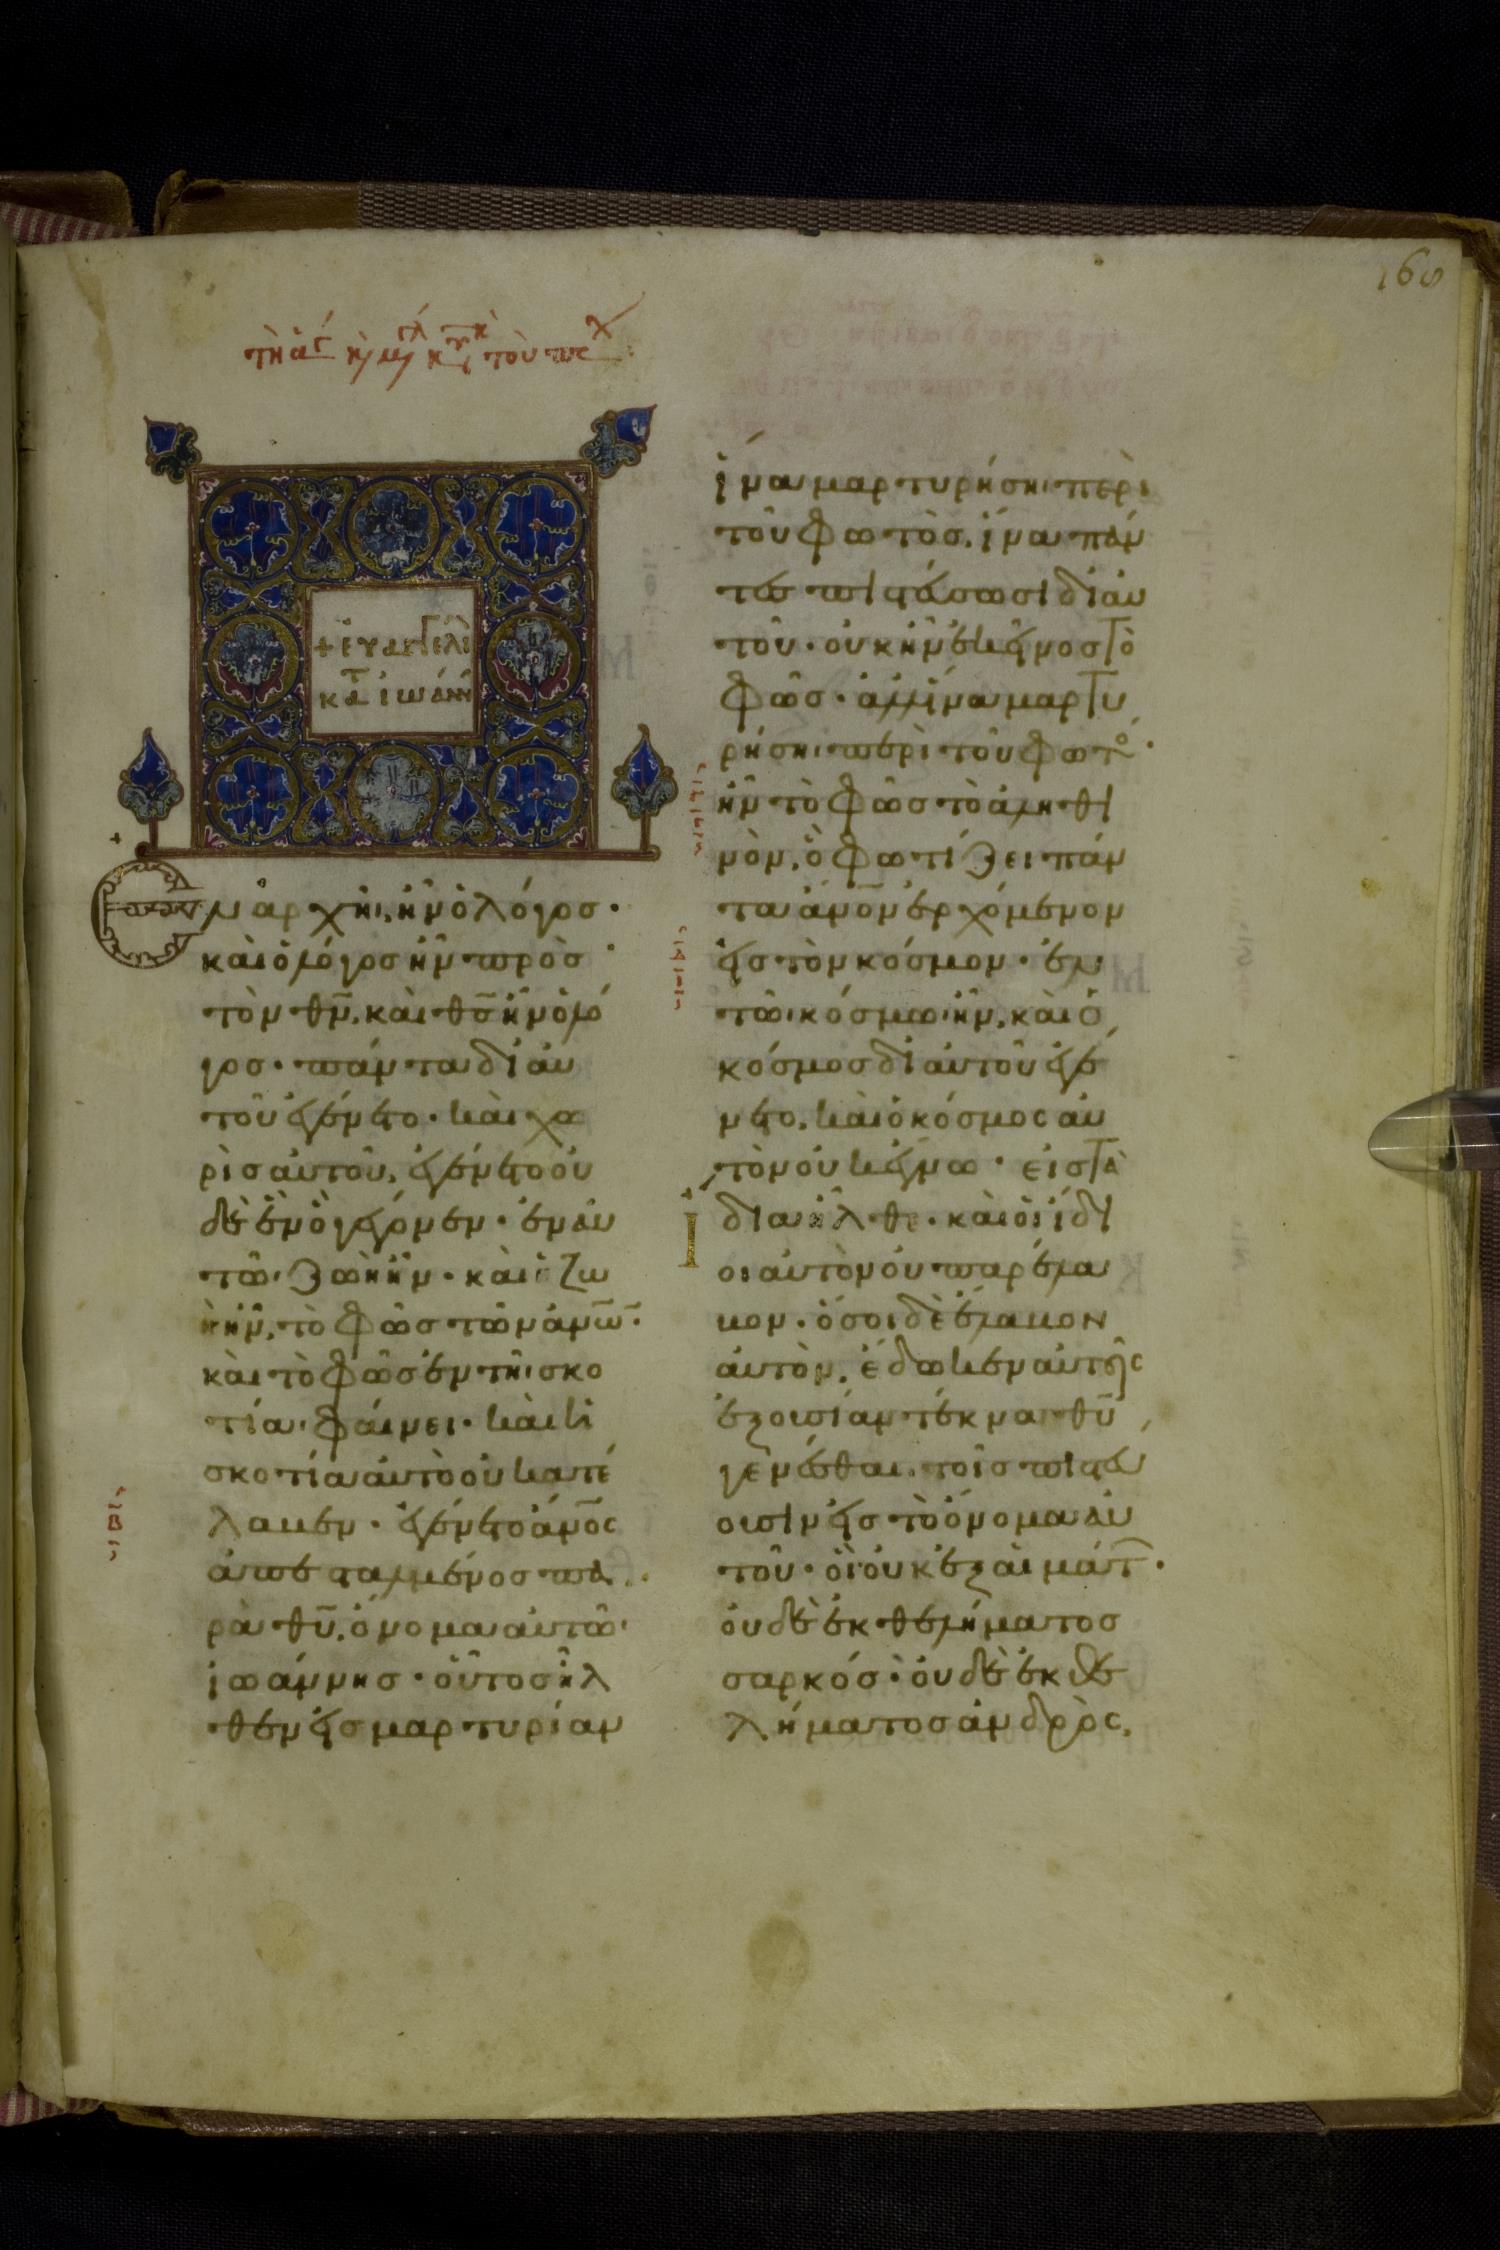 168
+ ἐυαγγελι
κατ ἰωάνν
Ἐν ἀρχῆι, ἦν ὁ λόγοσ ·
καὶ ὁ λόγοσ ἦν πρὸσ
τὸν θν̅, καὶ θσ̅ ἦν ὁ λό
γοσ · πάντα δι ἀυ
τοῦ ἐγένετο · καὶ χω
ρὶσ ἀυτοῦ, ἐγένετο ὀυ
δὲ ἓν ὃ γέγονεν · ἐν ἀυ
τῶι ζωὴ ἦν · καὶ ἡ ζω
ὴ ἦν, τὸ φῶσ τῶν ἀν̅ω̅ν ·
καὶ τὸ φῶσ ἐν τῆι σκο
τίαι φάινει · καὶ ἡ
σκοτία ἀυτὸ ὀυ κατέ
λαβεν · ἐγένετο ἀν̅οσ
ἀπεσταλμένοσ πα
ρὰ θυ̅, ὄνομα ἀυτῶι
ἰωάννησ · οὗτοσ ἦλ
θεν εἰσ μαρτυρίαν
ἵνα μαρτυρήσηι περὶ
τοῦ φωτὸσ, ἵνα πάν
τεσ πιστέυσωσι δι ἀυ
τοῦ · ὀυκ ἦν ἐκεῖνοσ τὸ
φῶσ · ἀλλ ἵνα μαρτυ
ρήσηι περὶ τοῦ φωτο ·
ἦν τὸ φῶσ τὸ ἀληθι
νὸν, ὃ φωτίζει πάν
τα ἀν̅ον ἐρχόμενον
εἰσ τὸν κόσμον · ἐν
τῶι κόσμωι ἦν, καὶ ὁ
κόσμοσ δι ἀυτοῦ ἐγέ
νετο, καὶ ὁ κόσμοσ ἀυ
τὸν ὀυκ ἔγνω · εἰσ τὰ
ἴδια ἦλθε · καὶ ὁι ἴδι
οι ἀυτὸν ὀυ παρέλα
βον · ὅσοι δὲ ἔλαβον
ἀυτὸν, ἔδωκεν ἀυτοῖσ
ἐξουσίαν τέκνα θυ̅
γενέσθαι, τοῖσ πιστέυ
ουσιν εἰσ τὸ ὄνομα ἀυ
τοῦ · ὃι ὀυκ ἐξ ἁιμάτ ·
ὀυδὲ ἐκ θελήματοσ
σαρκόσ · ὀυδὲ ἐκ θε
λήματοσ ἀνδρὸσ,